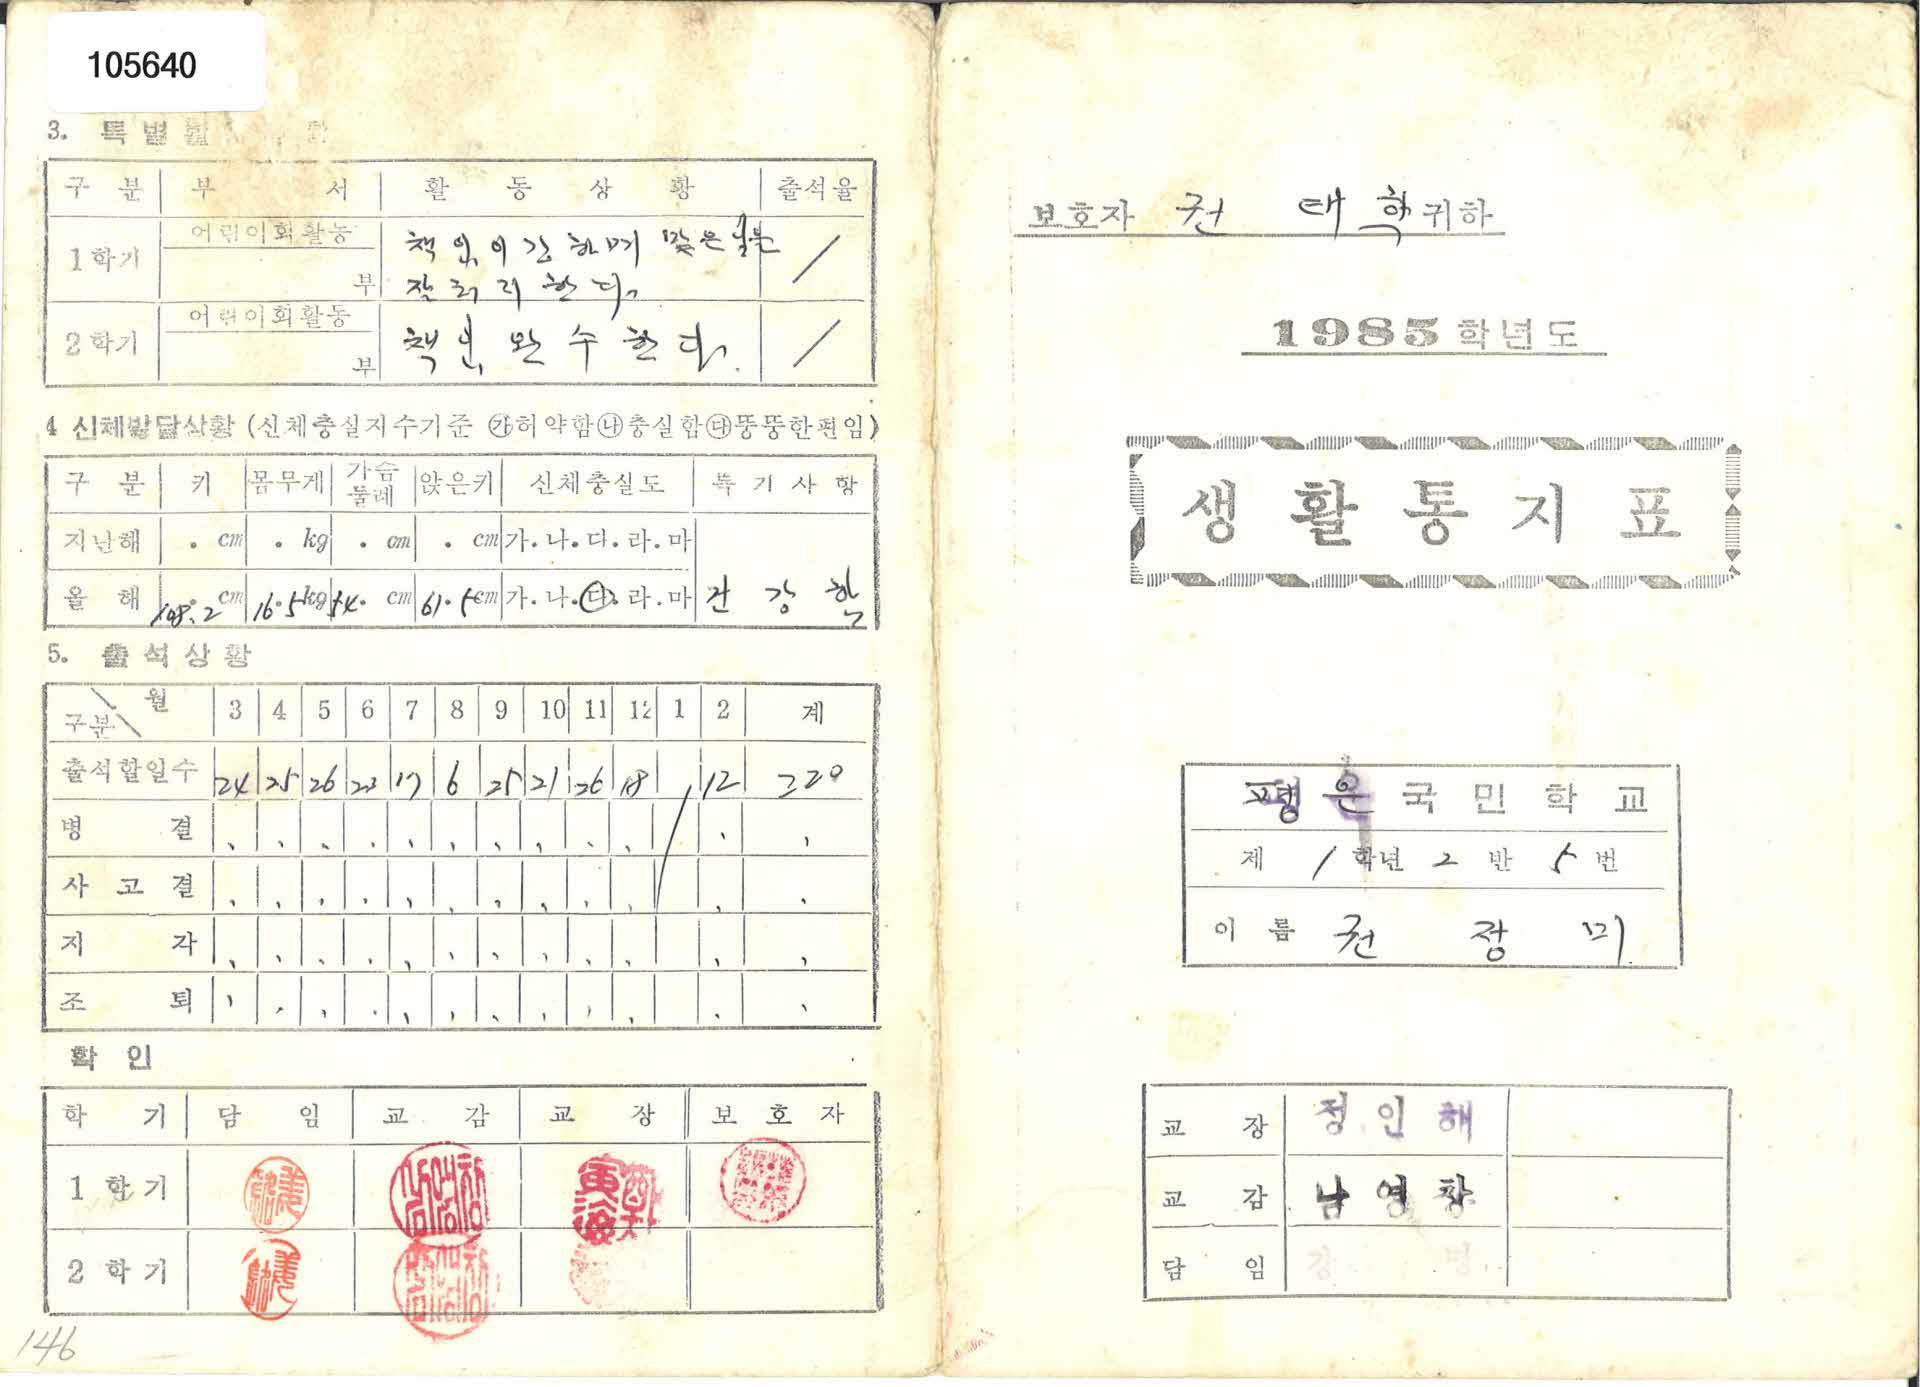 105640
3. 특별활
구분 부서 활동상황 출석율
1학기 어린이회활동 부 책임이 강하며 맡은 일을 잘 처리한다. /
2학기 어린이회활동 부 책임 완수한다. /
4 신체발달상황 (신체충실지수기준 ㉮허약함㉯충실함㉰뚱뚱한편임)
구분 키 몸무게 가슴둘레 앉은키 신체충실도 특기사항
지난해 . cm . kg . cm . cm 가.나.다.라.마
올해 108.2 cm 16.5 kg 54. cm 61.5 cm 가.나.다.라.마 건강함
5. 출석상황
월 구분 3 4 5 6 7 8 9 10 11 12 1 2 계
출석할일수 24 25 26 23 17 6 25 21 26 18 / 12 220
병결
사고결
지각
조퇴
확인
학기 담임 교감 교장 보호자
1학기
2학기
146
보호자 권태학 귀하
1985학년도
생활통지표
평은국민학교
제 1학년 2반 5번
이름 권정미
교장 정인해
교감 남영창
담임